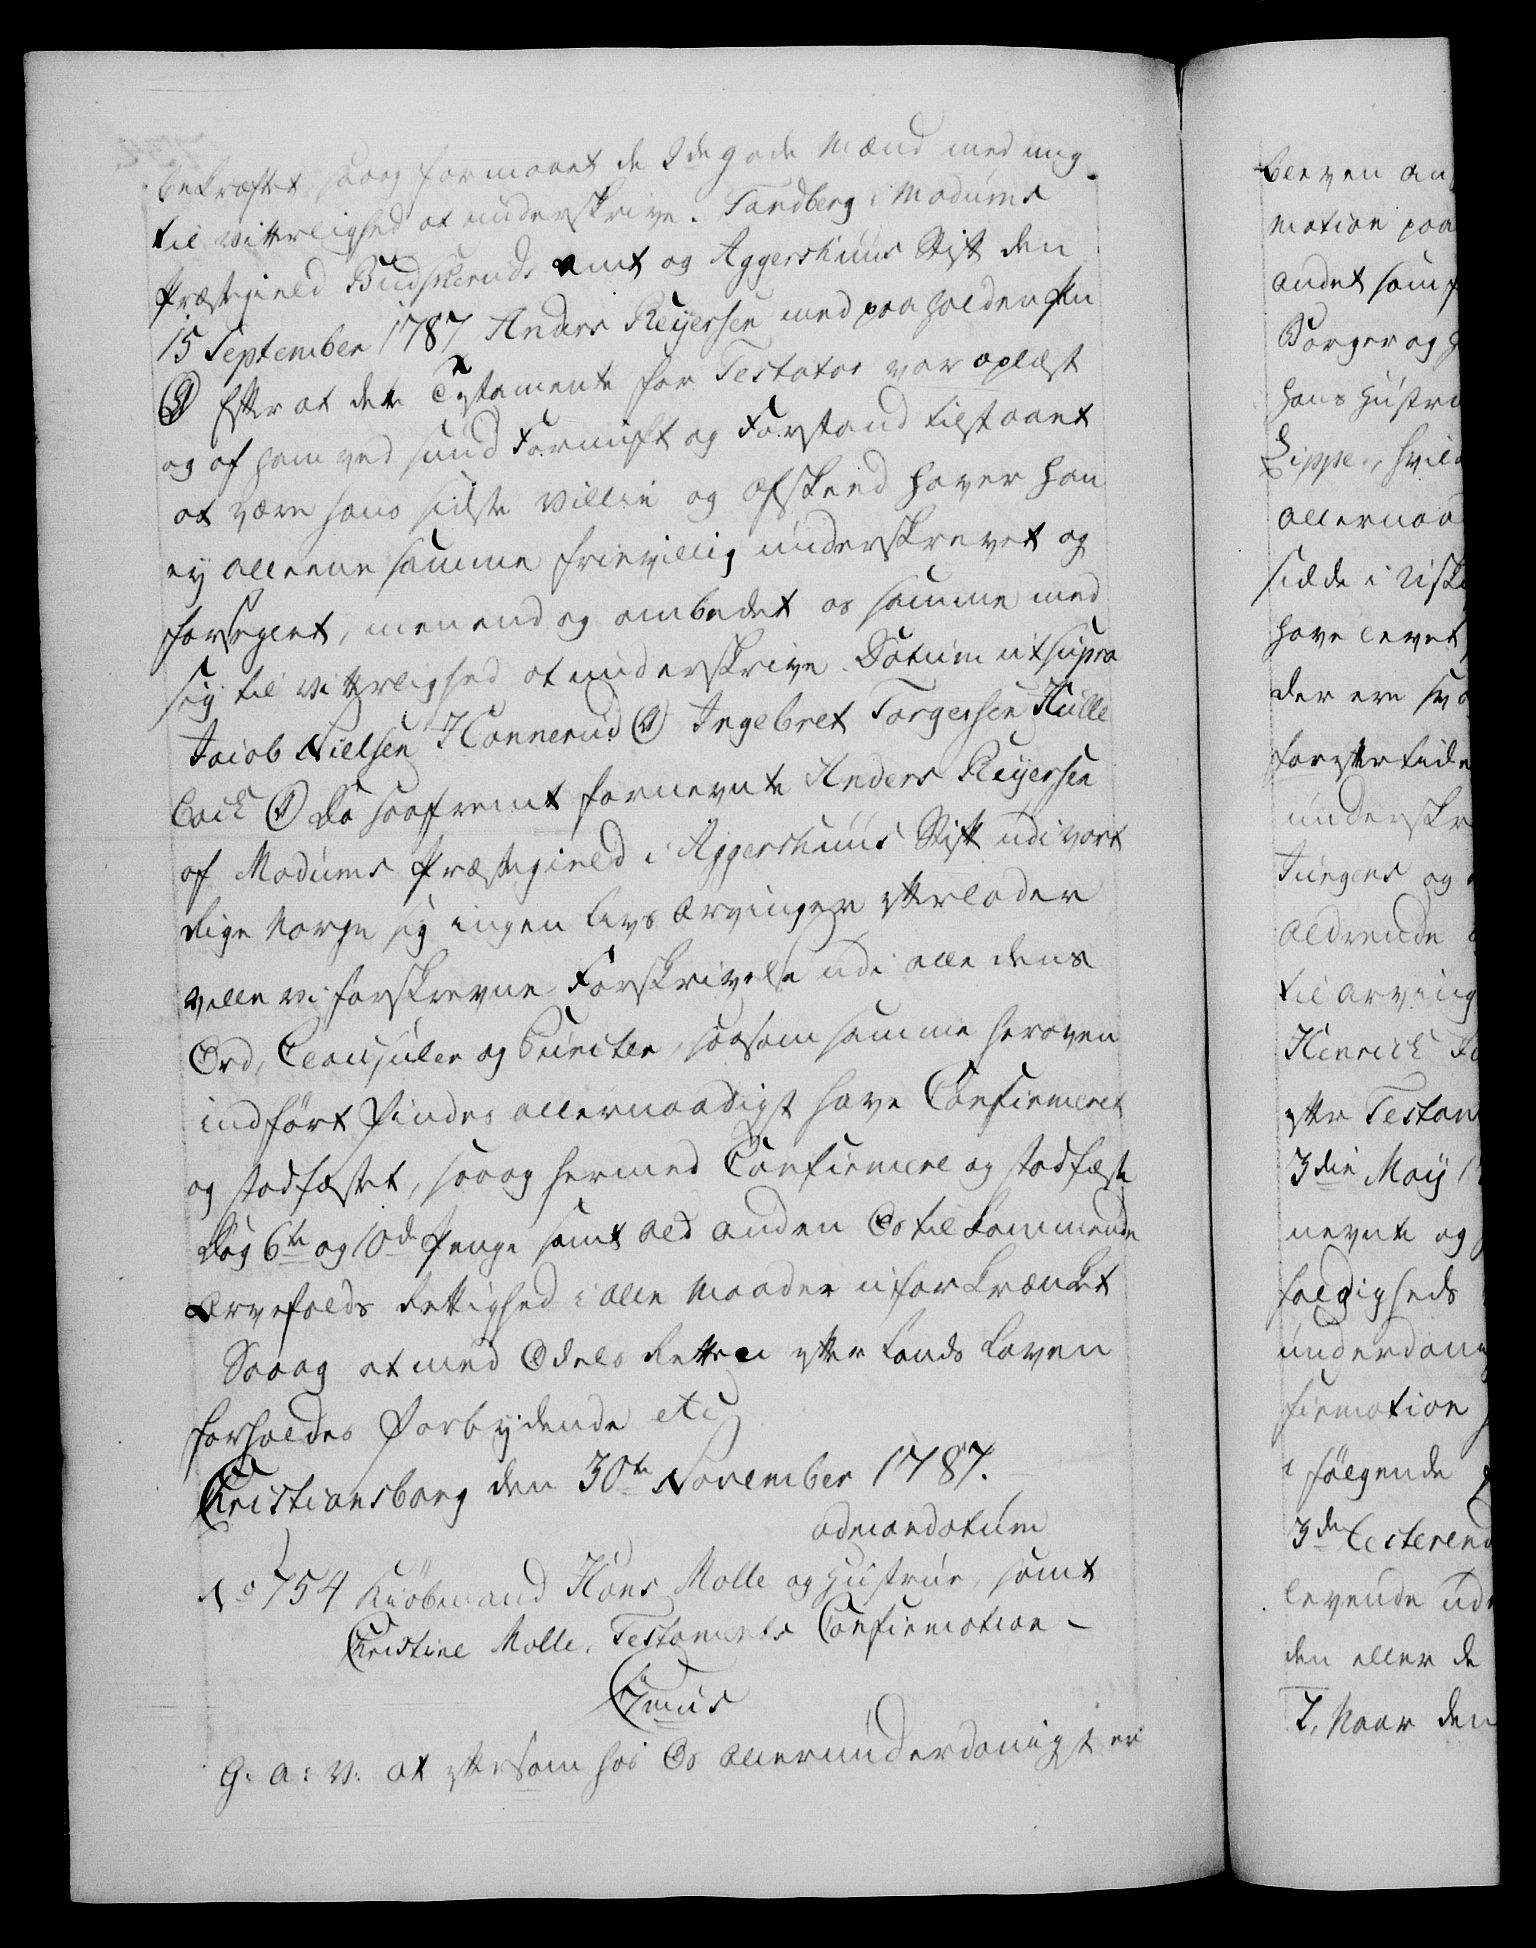 bekræftet, saaog formaaet de 2de gode Mænd med mig
til vitterlighed at underskrive. Tandberg i Modums
Præstegield Budskeruds Amt og Aggershuus Stift den
15 September 1787 Anders Reyersen med paaholden Pen
Efter at dette Testamente for Testator var oplæst
og af ham ved sund Fornuft og Forstand tilstaaet
at være hans sidste Villie og Afskeed haver han
ey alleene samme frievillig underskrevet og
forseglet, men endog ombedet os samme med
sig til vitterlighed at underskrive. Datum ut supra
Jacob Nielsen Honnerud Ingebret Torgersen Kulle
Da saafremt fornevnte Anders Reyersen
af Modums Præstegield i Aggershuus Stift udi vort
Rige Norge sig ingen Livs Arvinger efterlader
ville vi forskrevne Forskrivelse udi alle dens
Ord, Clausuler og Puncter, saasom samme heroven
indført findes allernaadigst have Confirmeret
og stadfæstet, saaog hermed Confirmere og stadfæste
Dog 6te og 10de Penge samt ald anden Os tilkommende
Arvefalds Rettighed i alle Maader uforkrænket
Saaog at med Odels Retten efter Lands Loven
forholdes Forbydende etc
Christiansborg den 30te November 1787.
admandatum
No 754 Kiøbmand Hans Molle og Hustrue, samt
Christine Molle, Testaments Confirmation –
G: A: V: at eftersom hos Os allerunderdanigst er
bleven an
mation paa
andet som
Borger og
hans Hustru
Lippe, hvil
allernaa
sidde i Uski
have levet
der ere
forestertide
underskr
Jürgens og
til Arving
Hinrich
efter Testam
3die May
nevnte og
foldigheds
underdani
firmation
i følgende
3de Testerend
levende ud
den eller de
I, Naar den